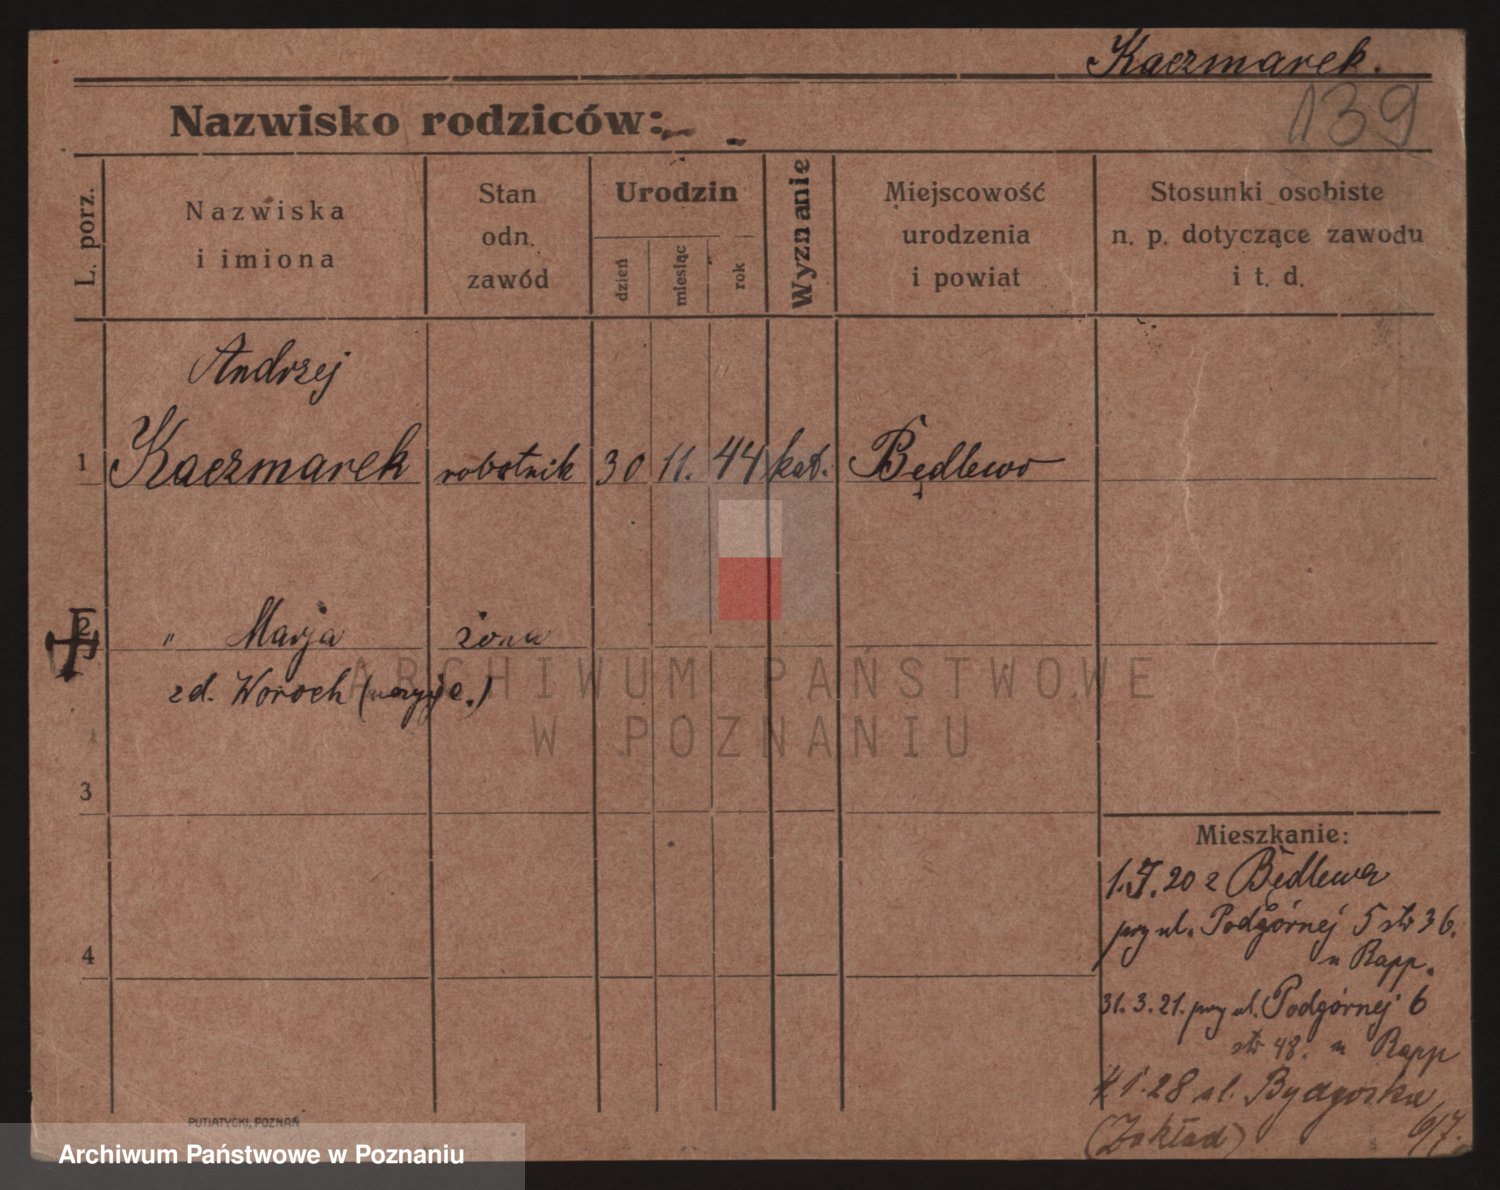 Kaczmarek.
139
Nazwisko rodziców:
L. porz.
Nazwiska
i imiona
Stan
odn.
zawód
Urodzin
dzień
miesiąc
rok
Wyznanie
Miejscowość
urodzenia
i powiat
Stosunki osobiste
n. p. dotyczące zawodu
i t. d.
Andrzej
1 Kaczmarek robotnik 30 11. 44 kat. Będlewo
2 " Marja żona
zd. Woroch
3
4
Mieszkanie:
1. 20 z Będlewa
przy ul. Podgórnej 5 str 36.
u Rapp.
31. 3. 21. przy ul. Podgórnej 6
str 48. u Rapp
1. 28 ul. Bydgoska
(Zakład)
PUTIATYCKI, POZNAŃ
ARCHIWUM PAŃSTWOWE
W POZNANIU
Archiwum Państwowe w Poznaniu